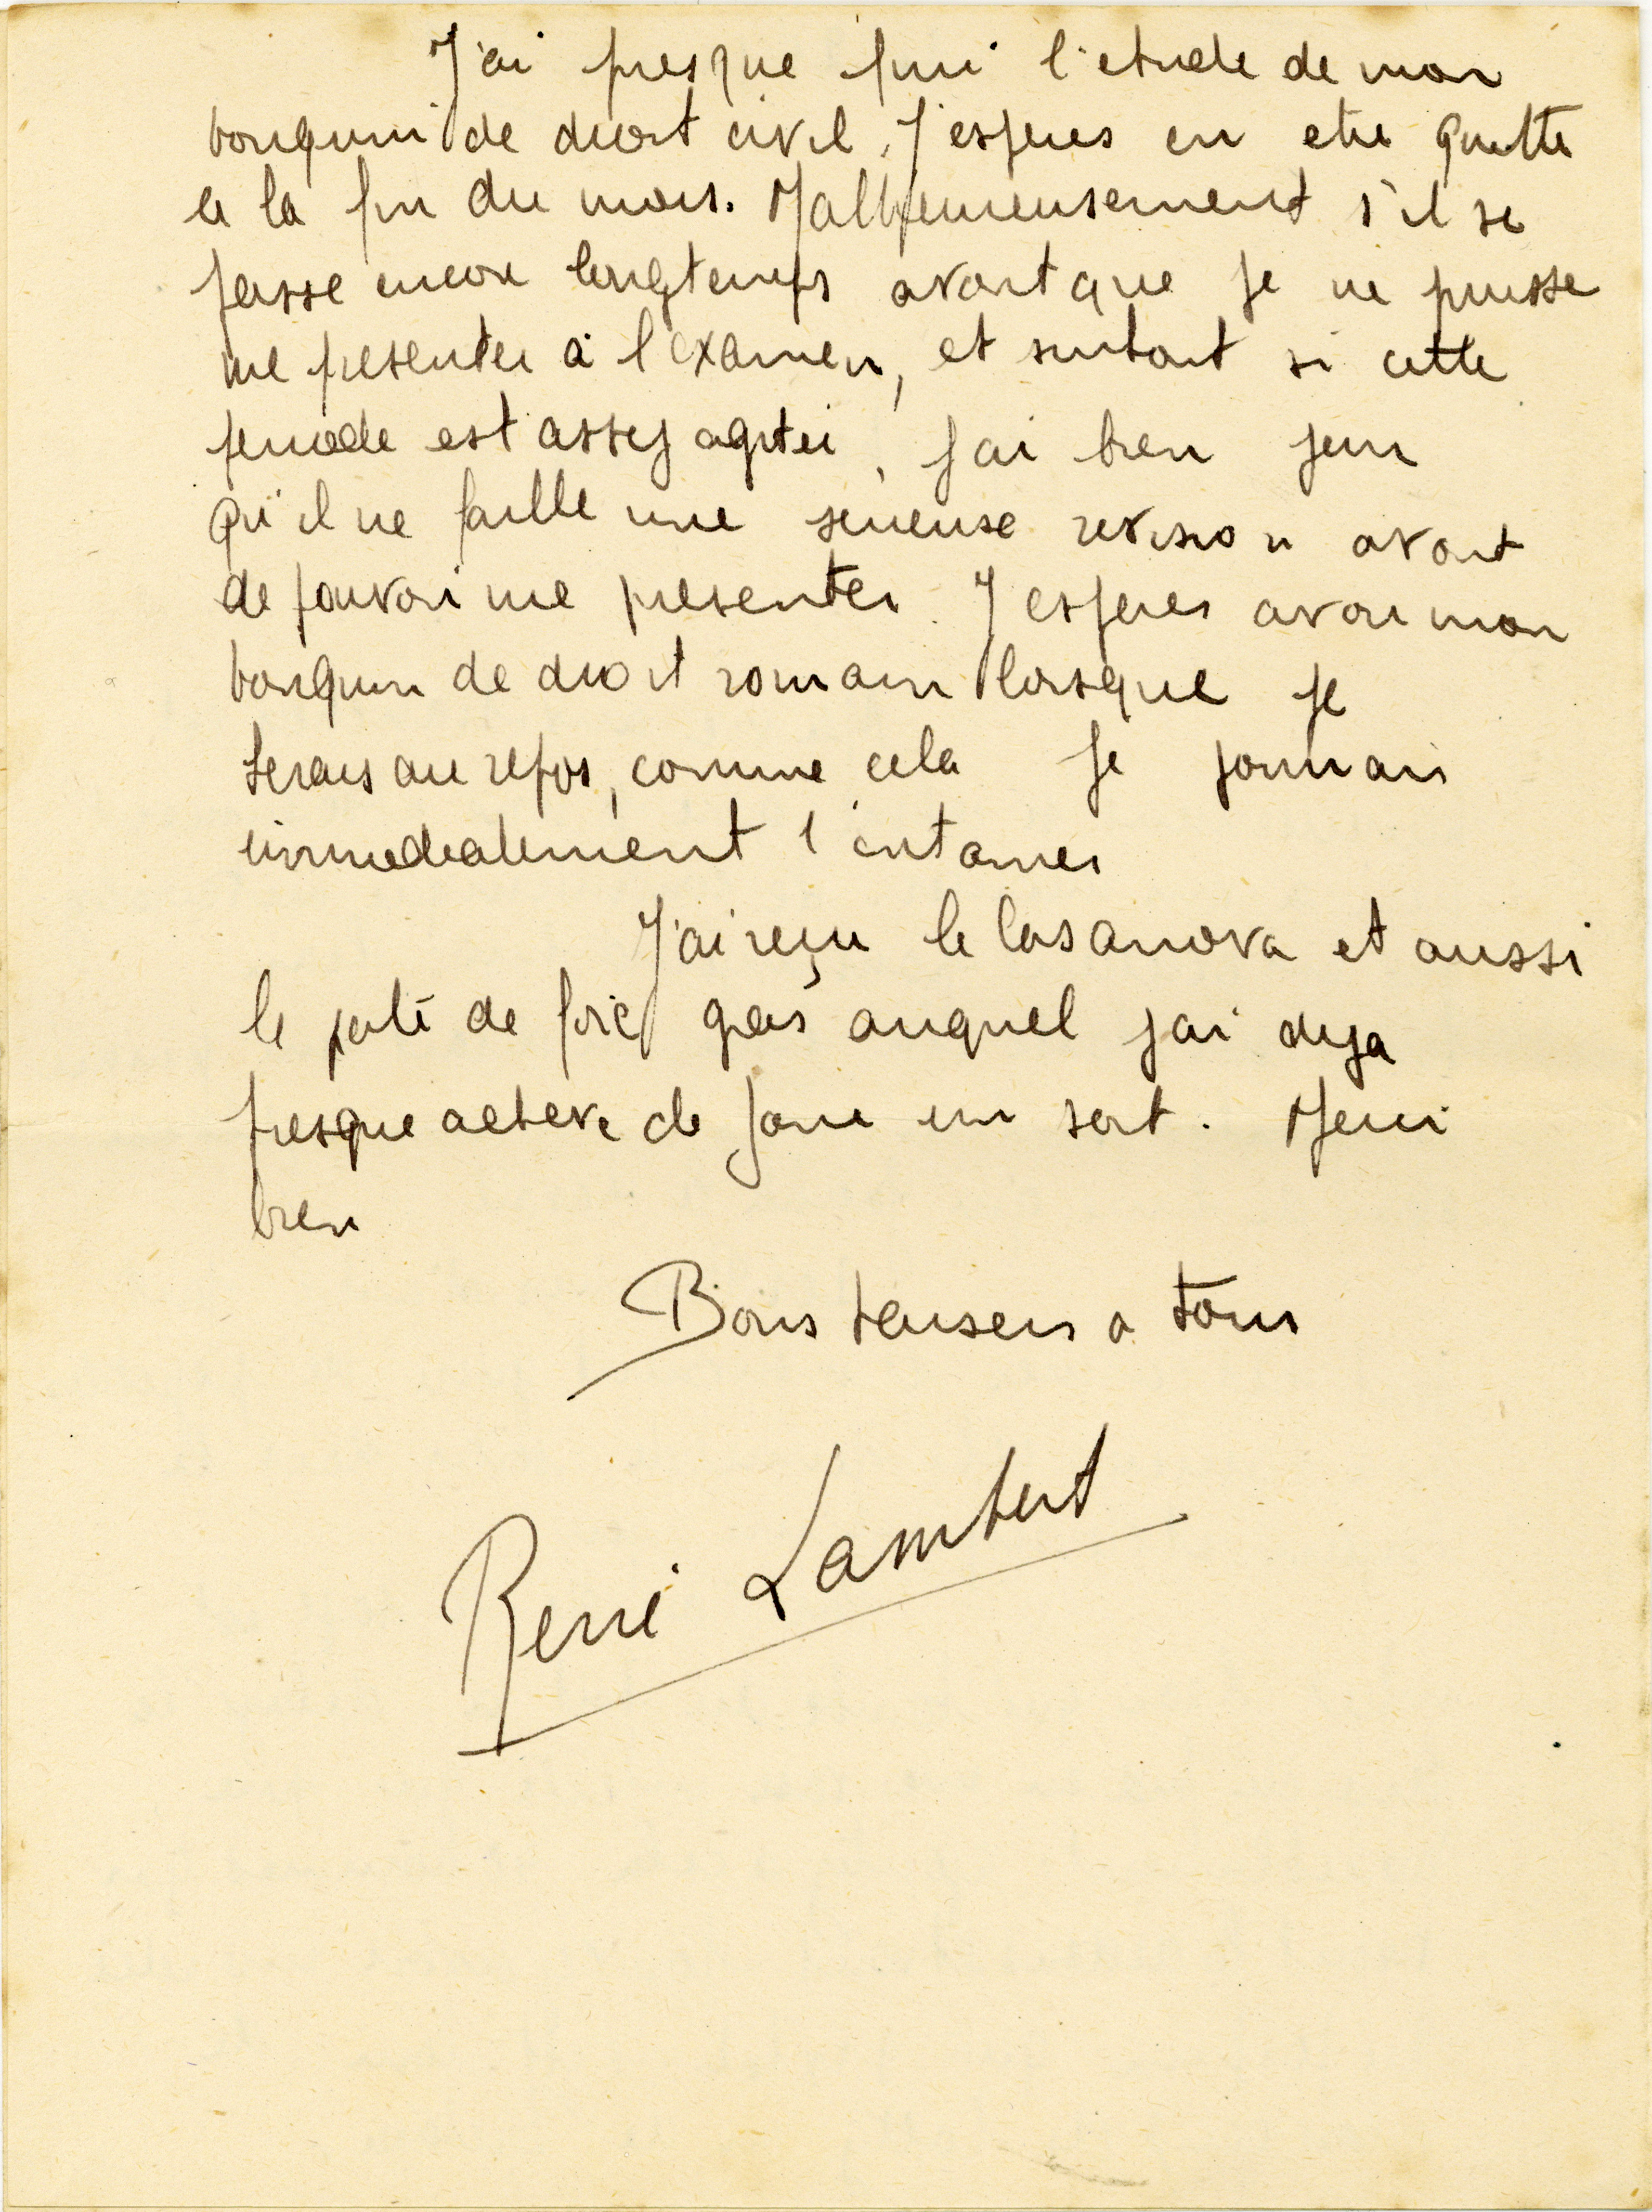 J'ai presque fini l'etude de mon
bouquin de droit civil. J'esperes en etre quitte
a la fin du mois. Malheureusement s'il se
passe encore longtemps avant que je ne puisse
me presenter à l'examen, et surtout si cette
periode est assez agitéi, j'ai bien peur
qu'il ne faille une serieuse revision avant
de pouvoir me presenter. J'esperes avoir mon
bouquin de droit romain lorsque je
serais au repos, comme cela je pourrais
immediatement l'entamer
J'ai reçu le Casanova et aussi
le paté de foie gras auquel j'ai deja
presque acheve de faire un sort. Merci
bien
Bons baisers a tous
René Lambert